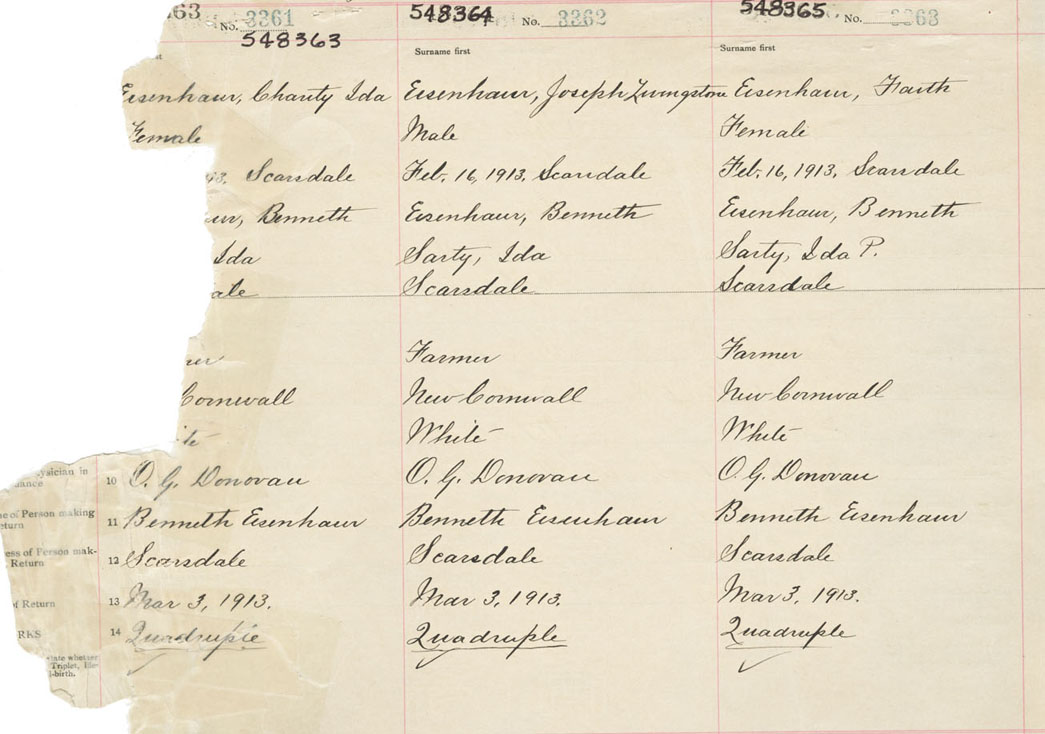 63 548364 548365
No. 3361 No. 3362 No. 3363
548363
Surname first Surname first
st
Eisenhaur, Charity Ida Eisenhaur, Joseph Livingstone Eisenhaur, Faith
Female Male Female
13. Scarsdale Feb. 16, 1913. Scarsdale Feb. 16, 1913. Scarsdale
eur, Benneth Eisenhaur, Benneth Eisenhaur, Benneth
Ida Sarty, Ida Sarty, Ida P.
ale Scarsdale Scarsdale
mer Farmer Farmer
Cornwall New Cornwall New Cornwall
ite White White
ysician in
dance 10 O. G. Donovan O. G. Donovan O. G. Donovan
me of Person making
eturn 11 Benneth Eisenhaur Benneth Eisenhaur Benneth Eisenhaur
ess of Person mak-
Return 12 Scarsdale Scarsdale Scarsdale
of Return 13 Mar 3, 1913. Mar 3, 1913. Mar 3, 1913.
RKS 14 Quadruple Quadruple Quadruple
tate whether
Triplet, Ille-
l-birth.